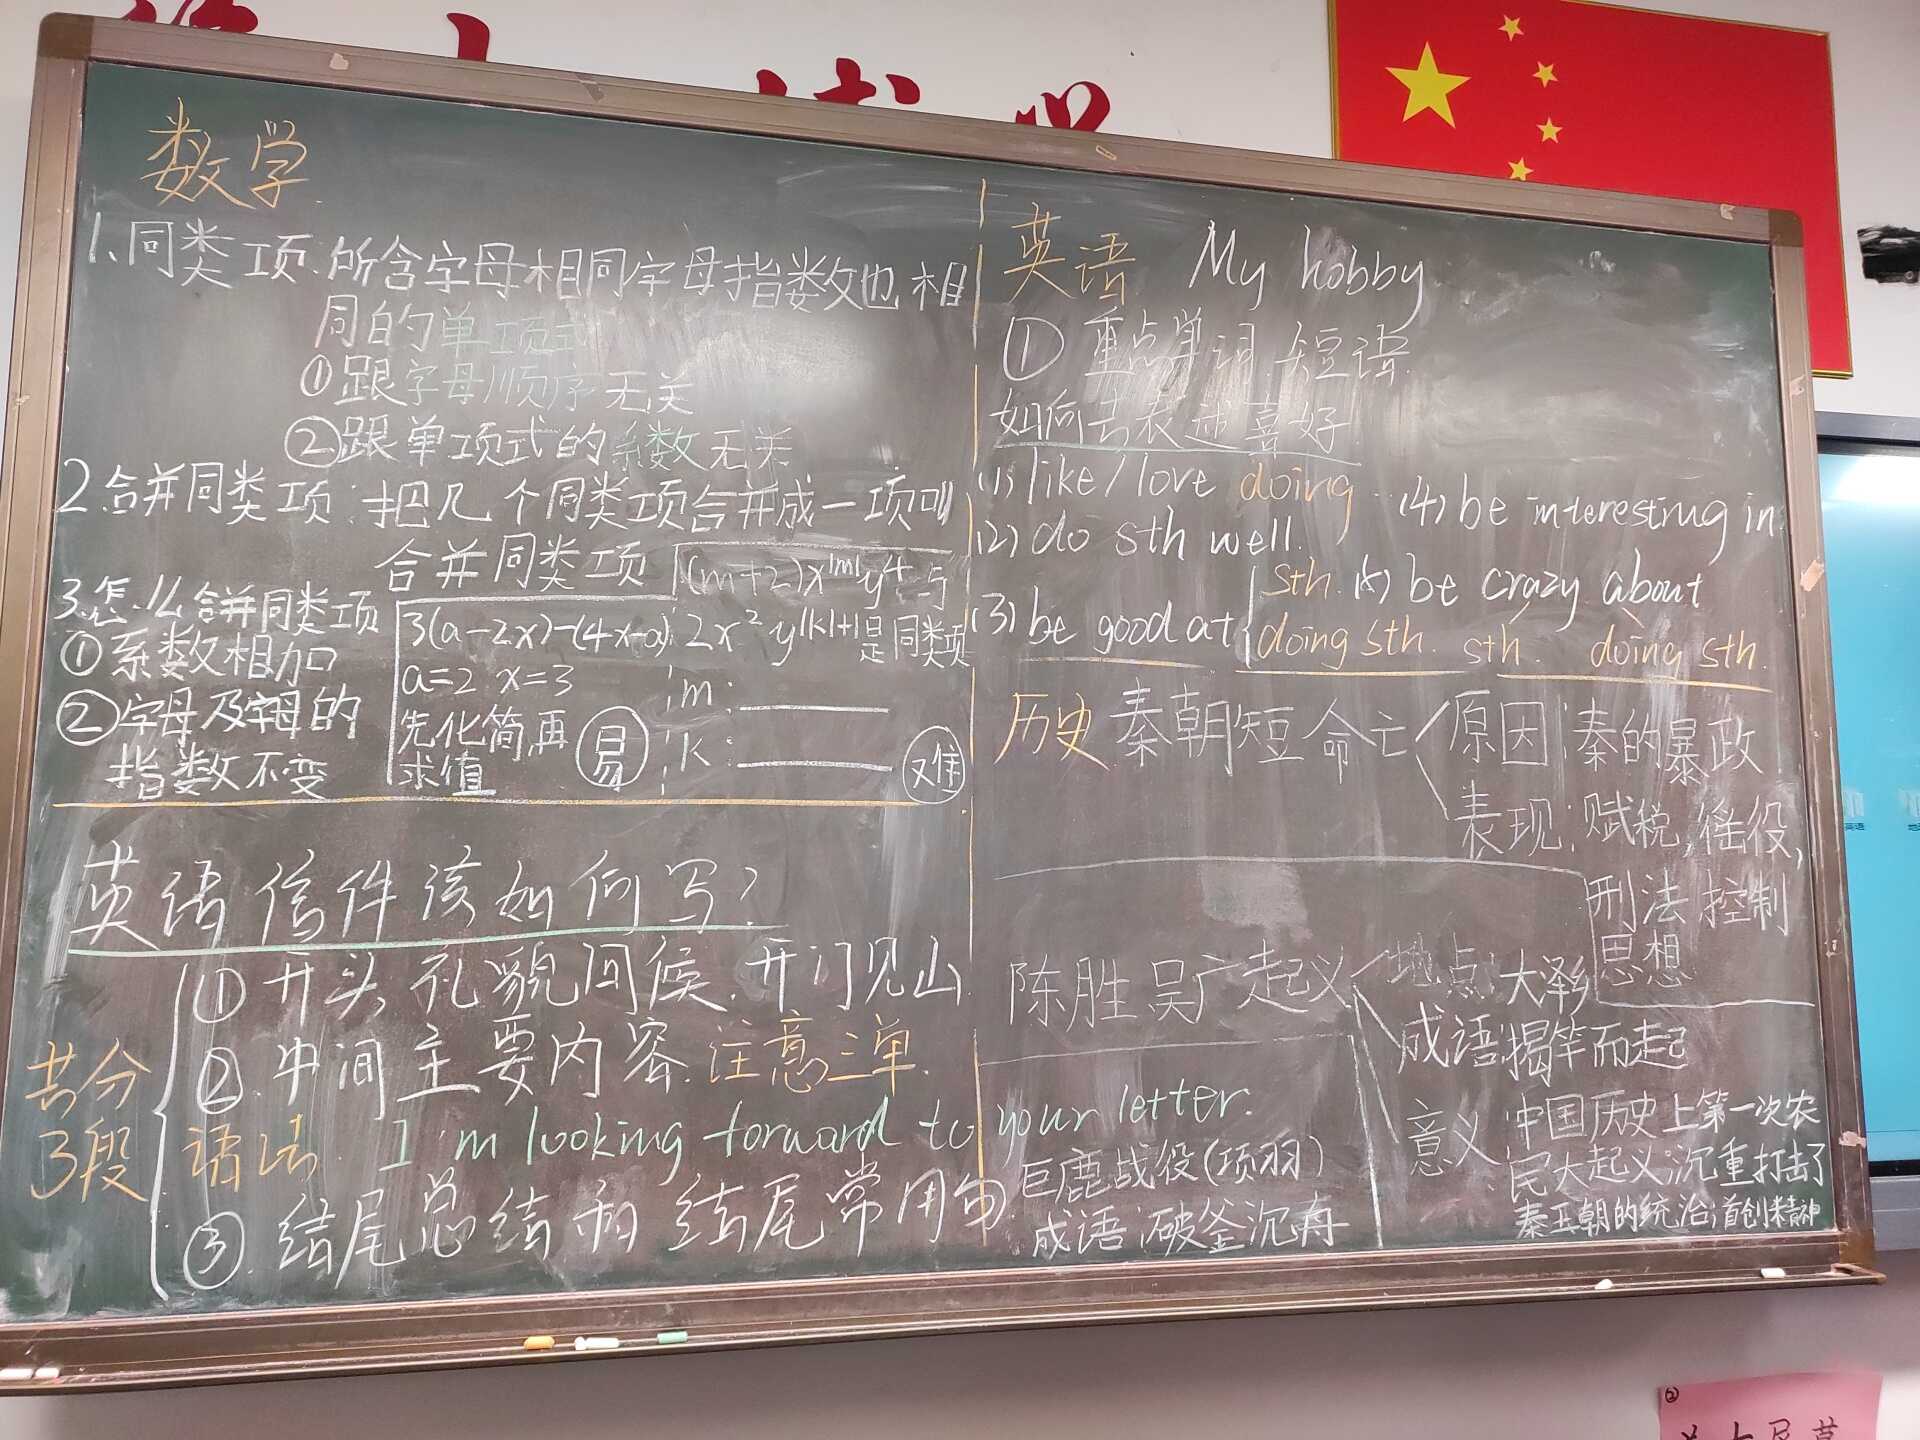 数学
1.同类项:所含字母相同字母指数也相
同的单项式
①跟字母顺序无关
②跟单项式的系数无关
2.合并同类项:把几个同类项合并成一项叫
合并同类项
3.怎么合并同类项
①系数相加
②字母及字母的
指数不变
3(a-2x)-(4x-a)
a=2 x=3
先化简,再
求值
易
(m+2)x^|m|y^4与
2x^2 y^|k|+1是同类项
m:
k:
难
英语信件该如何写?
共分
3段
①开头礼貌问候.开门见山
②.中间主要内容.注意三单.
语法. I'm looking forward to your letter.
③.结尾总结和结尾常用句
英语 My hobby
①重点单词.短语.
如何去表述喜好
(1) like/love doing
(2) do sth well.
(3) be good at
sth.
doing sth.
(4) be interesting in.
(5) be crazy about
sth. doing sth.
历史 秦朝短命亡
原因:秦的暴政
表现:赋税,徭役,
刑法 控制
思想
陈胜吴广起义
地点:大泽乡
成语:揭竿而起
意义:中国历史上第一次农
民大起义;沉重打击了
秦王朝的统治;首创精神
巨鹿战役(项羽)
成语:破釜沉舟